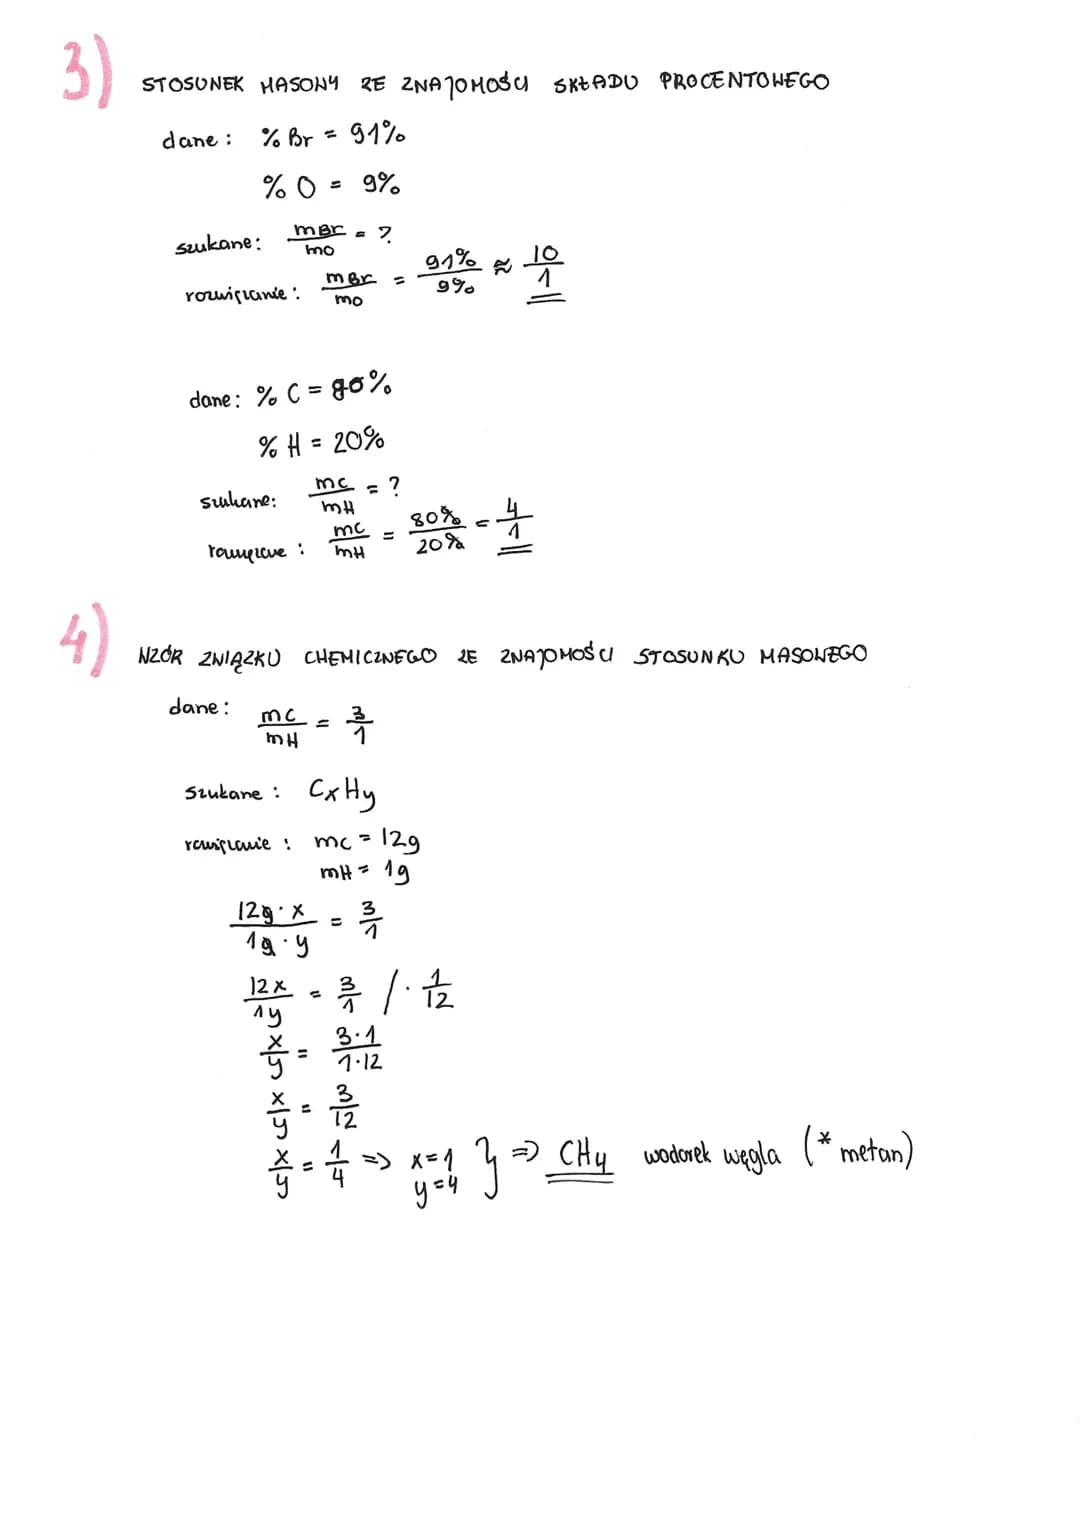 3) STOSUNEK MASOWY ZE ZNAJOMOŚCI SKŁADU PROCENTOWEGO
dane: % Br = 91%
% O = 9%
szukane: mBr/mO = ?
rozwiązanie: mBr/mO = 91%/9% ≈ 10/1
dane: % C = 80%
% H = 20%
szukane: mC/mH = ?
rozwiązanie: mC/mH = 80%/20% = 4/1
4) WZÓR ZWIĄZKU CHEMICZNEGO ZE ZNAJOMOŚCI STOSUNKU MASOWEGO
dane: mC/mH = 3/1
szukane: CxHy
rozwiązanie: mC = 12g
mH = 1g
12g·x/1g·y = 3/1
12x/1y = 3/1 /· 1/12
x/y = 3·1/1·12
x/y = 3/12
x/y = 1/4 => x=1 y=4 } => CH4 wodorek węgla (* metan)